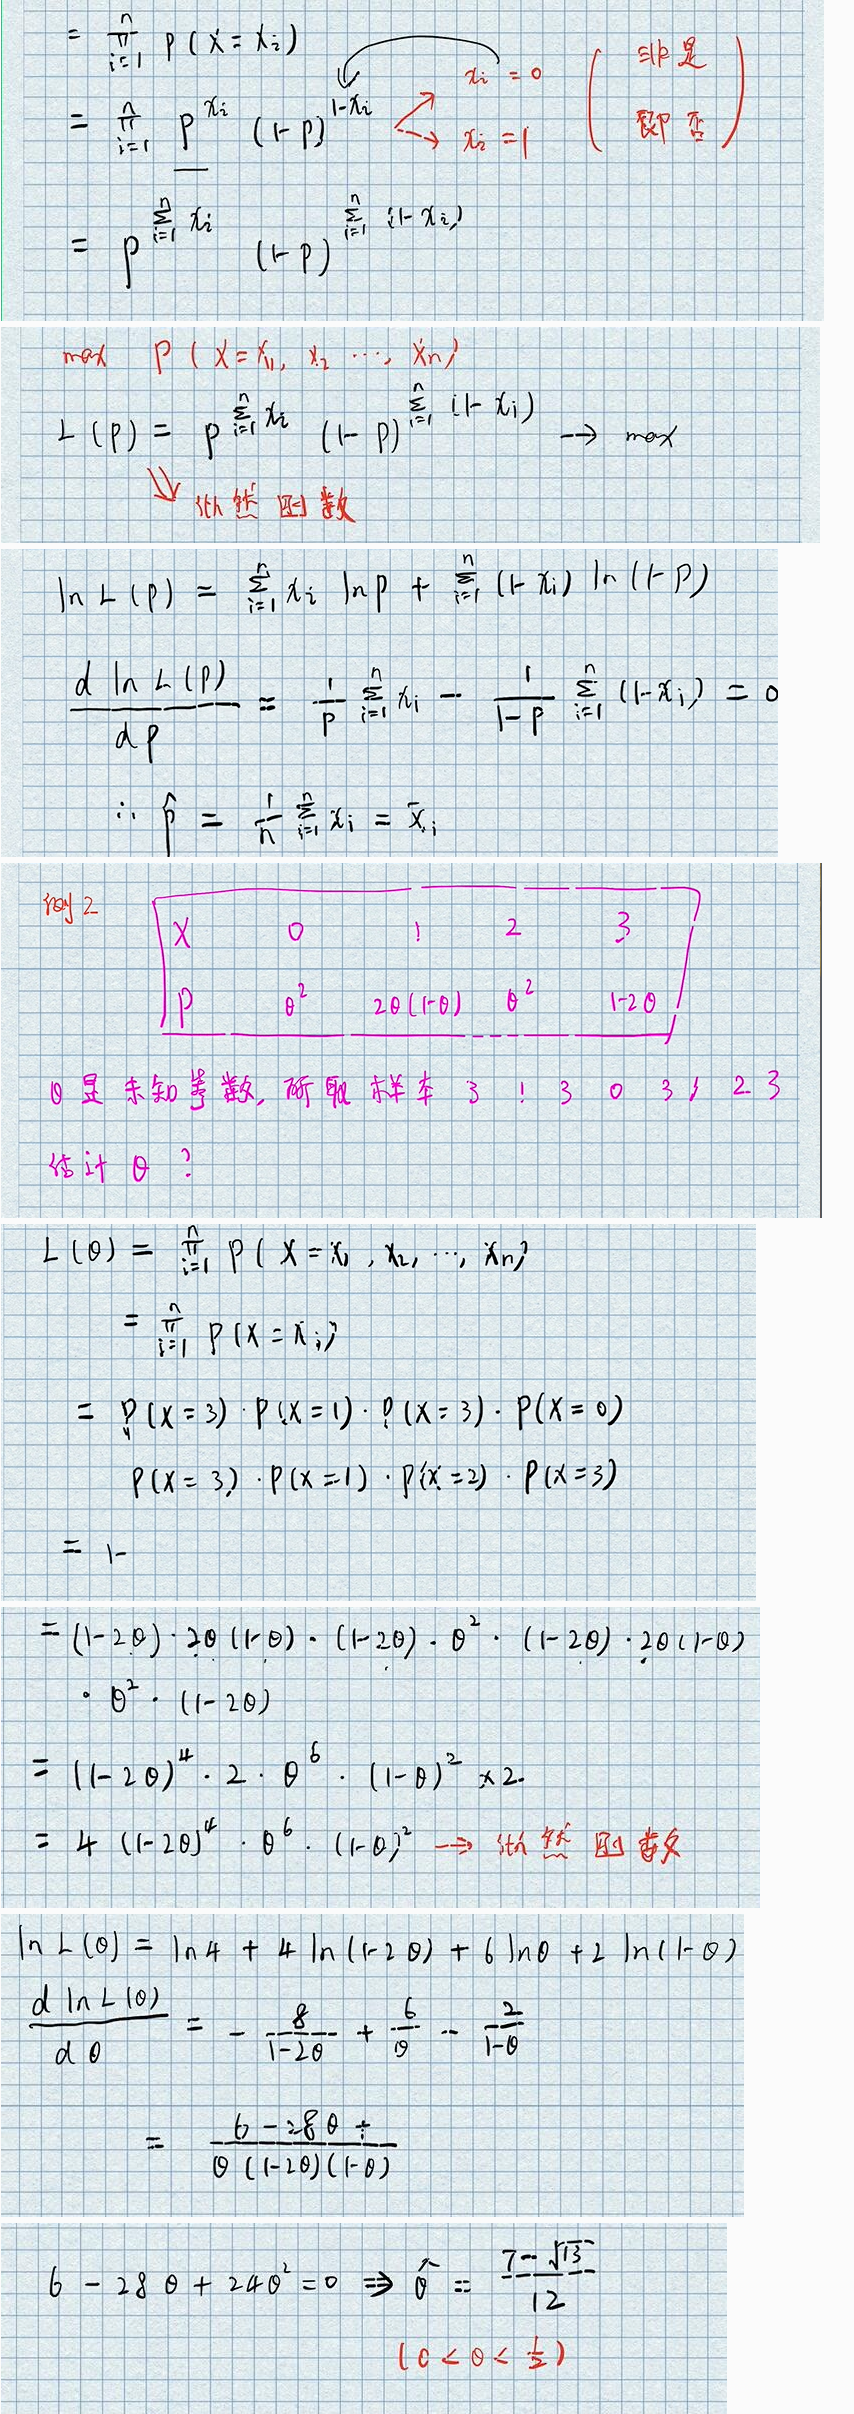 = ∏_{i=1}^{n} P(X = x_i)
= ∏_{i=1}^{n} p^{x_i} (1-p)^{1-x_i} x_i = 0 x_i = 1 ( 非是 即否 )
= p^{∑_{i=1}^{n} x_i} (1-p)^{∑_{i=1}^{n} (1-x_i)}
max P(X = x_1, x_2 …, x_n)
L(p) = p^{∑_{i=1}^{n} x_i} (1-p)^{∑_{i=1}^{n} (1-x_i)} → max
似然函数
ln L(p) = ∑_{i=1}^{n} x_i ln p + ∑_{i=1}^{n} (1-x_i) ln(1-p)
d ln L(p) / dp = 1/p ∑_{i=1}^{n} x_i − 1/(1-p) ∑_{i=1}^{n} (1-x_i) = 0
∴ p̂ = 1/n ∑_{i=1}^{n} x_i = x̄_i
例2
X 0 1 2 3
P θ² 2θ(1-θ) θ² 1-2θ
θ是未知参数, 所取样本 3 1 3 0 3 1 2 3
估计 θ ?
L(θ) = ∏_{i=1}^{n} P(X = x_1, x_2, …, x_n)
= ∏_{i=1}^{n} P(X = x_i)
= P(X=3)·P(X=1)·P(X=3)·P(X=0)
P(X=3)·P(X=1)·P(X=2)·P(X=3)
= 1-
= (1-2θ)·2θ(1-θ)·(1-2θ)·θ²·(1-2θ)·2θ(1-θ)
·θ²·(1-2θ)
= (1-2θ)⁴·2·θ⁶·(1-θ)² ×2.
= 4 (1-2θ)⁴·θ⁶·(1-θ)² → 似然函数
ln L(θ) = ln4 + 4 ln(1-2θ) + 6 lnθ + 2 ln(1-θ)
d ln L(θ) / dθ = − 8/(1-2θ) + 6/θ − 2/(1-θ)
= (6 − 28θ +) / (θ(1-2θ)(1-θ))
6 − 28θ + 24θ² = 0 ⇒ θ̂ = (7−√13)/12
(0 < θ < 1/2)